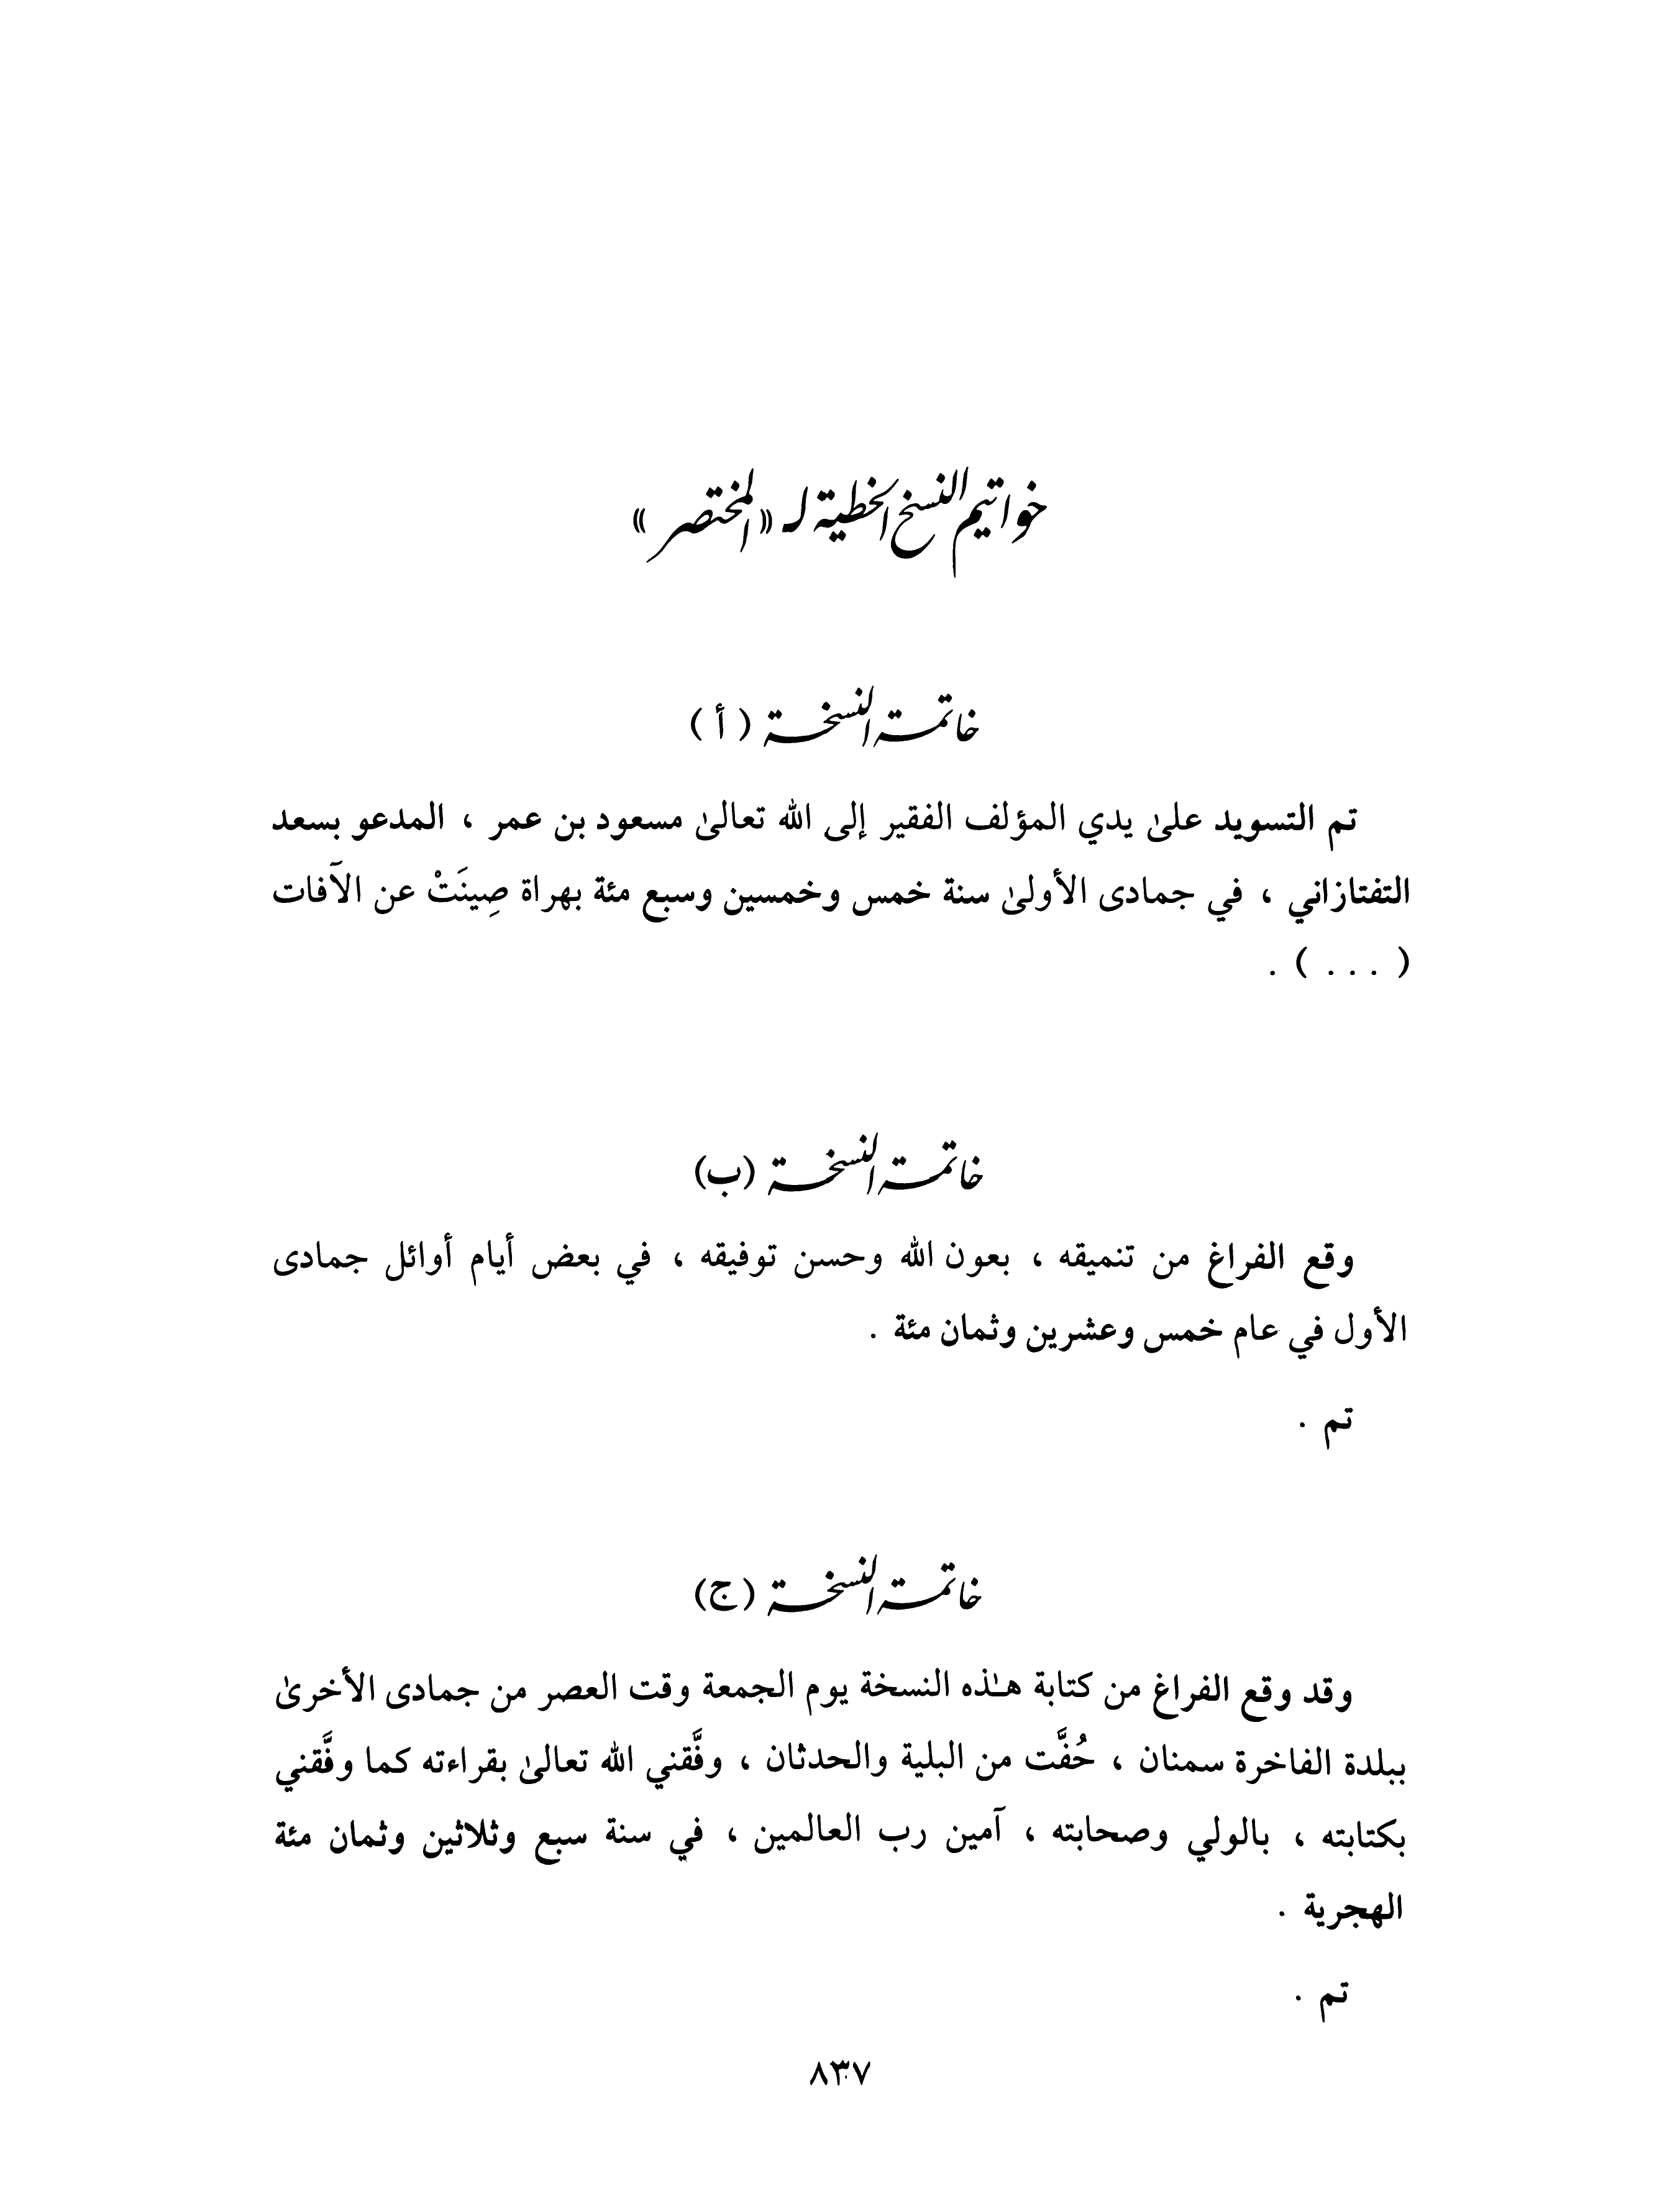 خواتيم النسخ الخطية لـ «المختصر»
خاتمة النسخة ( أ )
تم التسويد علىٰ يدي المؤلف الفقير إلى الله تعالىٰ مسعود بن عمر ، المدعو بسعد
التفتازاني ، في جمادى الأولىٰ سنة خمس وخمسين وسبع مئة بهراة صِينَتْ عن الآفات
( . . . ) .
خاتمة النسخة (ب)
وقع الفراغ من تنميقه ، بعون الله وحسن توفيقه ، في بعض أيام أوائل جمادى
الأول في عام خمس وعشرين وثمان مئة .
تم .
خاتمة النسخة (ج)
وقد وقع الفراغ من كتابة هـٰذه النسخة يوم الجمعة وقت العصر من جمادى الأخرىٰ
ببلدة الفاخرة سمنان ، حُفَّت من البلية والحدثان ، وفَّقني الله تعالىٰ بقراءته كما وفَّقني
بكتابته ، بالولي وصحابته ، آمين رب العالمين ، في سنة سبع وثلاثين وثمان مئة
الهجرية .
تم .
٨٣٧